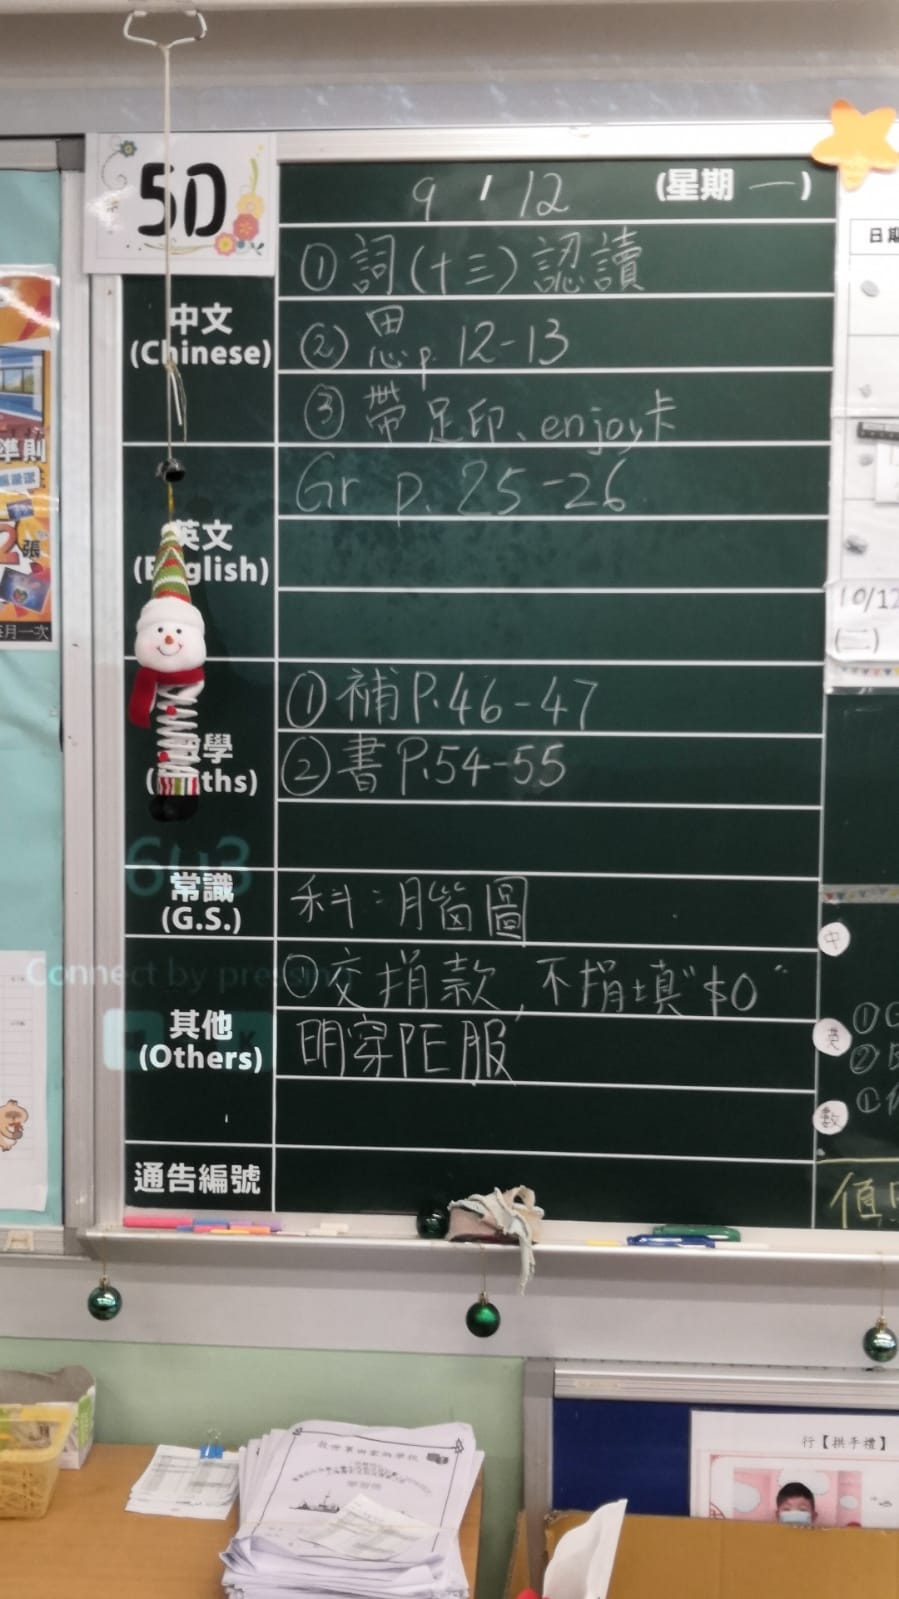 5D
9 / 12 (星期 一)
中文
(Chinese)
①詞(十三)認讀
②思p.12-13
③帶足印、enjoy卡
英文
(English)
Gr p.25-26
(Maths)
①補P.46-47
②書P.54-55
常識
(G.S.)
科:腦圖
Connect by pressing
其他
(Others)
①交捐款,不捐填"$0"
明穿PE服
通告編號
準則
張
每月一次
日期
10/12
(二)
中
英
數
①
②
①
行【拱手禮】